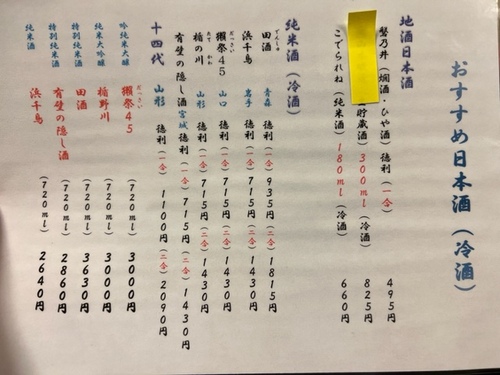 おすすめ日本酒（冷酒）
地酒日本酒
誓乃井（燗酒・ひや酒）徳利（一合） 495円
貯蔵酒 300ml（冷酒） 825円
こでられね（純米酒）180ml（冷酒） 660円
純米酒（冷酒）
田酒 青森 徳利（一合）935円（二合）1815円
浜千鳥 岩手 徳利（一合）715円（二合）1430円
獺祭45 山口 徳利（一合）715円（二合）1430円
楯の川 山形 徳利（一合）715円（二合）1430円
有壁の隠し酒 宮城 徳利（一合）715円（二合）1430円
十四代 山形 徳利（一合）1100円（二合）2090円
吟純米大醸 獺祭45（720ml） 3000円
純米大吟醸 楯野川（720ml） 3000円
特別純米酒 田酒（720ml） 3630円
特別純米酒 有壁の隠し酒（720ml） 2860円
純米酒 浜千鳥（720ml） 2640円